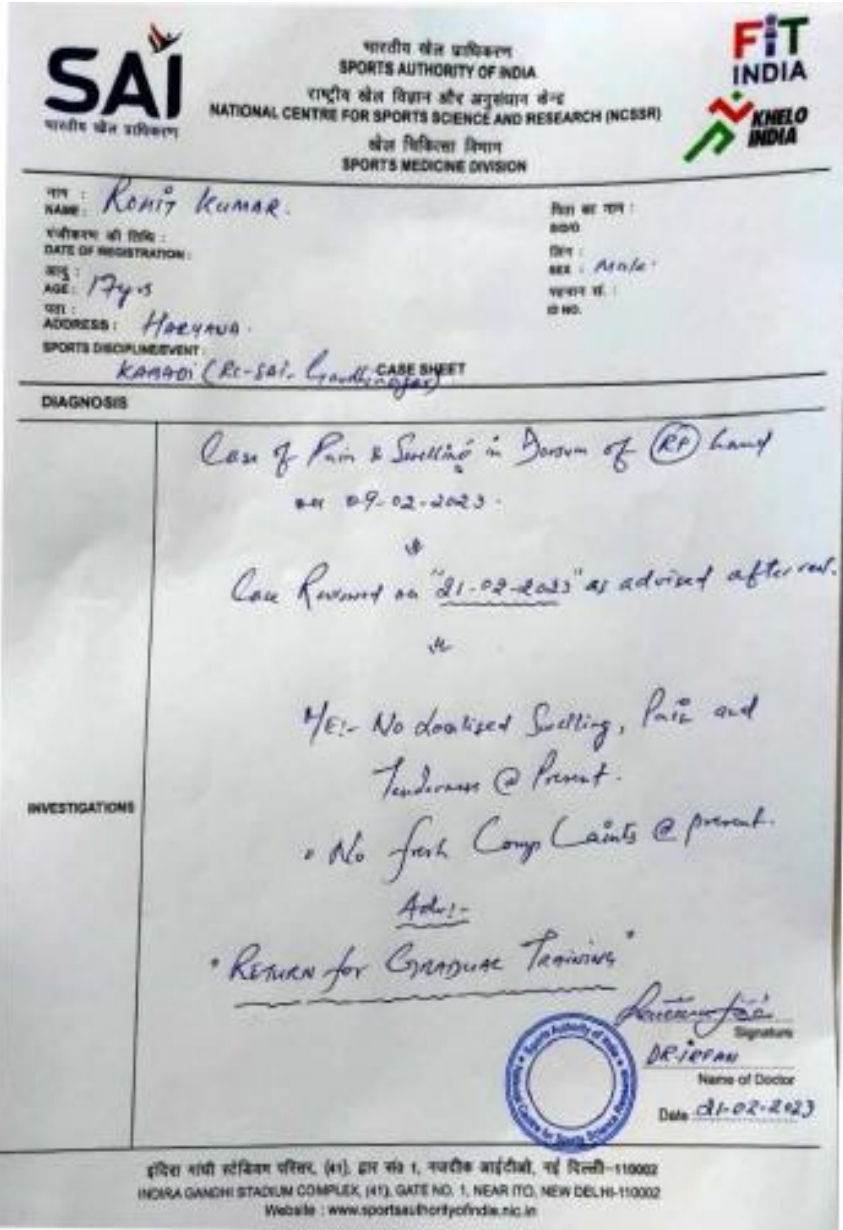 SAI
भारतीय खेल प्राधिकरण
भारतीय खेल प्राधिकरण
SPORTS AUTHORITY OF INDIA
राष्ट्रीय खेल विज्ञान और अनुसंधान केन्द्र
NATIONAL CENTRE FOR SPORTS SCIENCE AND RESEARCH (NCSSR)
खेल चिकित्सा विभाग
SPORTS MEDICINE DIVISION
FIT
INDIA
KHELO
INDIA
नाम :
NAME : ROHIT KUMAR.
पिता का नाम :
S/D/O
पंजीकरण की तिथि :
DATE OF REGISTRATION :
लिंग :
SEX : Male.
आयु :
AGE : 17yrs
पहचान सं. :
ID NO.
पता :
ADDRESS : HARYANA.
SPORTS DISCIPLINE/EVENT :
KABADI (RC-SAI, Gandhinagar)
CASE SHEET
DIAGNOSIS
Case of Pain & Swelling in Dorsum of (RT) hand
on 09-02-2023.
Case Reviewed on "21-02-2023" as advised after rest.
INVESTIGATIONS
No Localised Swelling, Pain and
Tenderness @ Present.
• No fresh Complaints @ present.
Adv:-
"RETURN for GRADUAL TRAINING"
Signature
DR. IRFAN
Name of Doctor
Date 21-02-2023
Sports Authority of India
National Centre for Sports Science Research
इंदिरा गांधी स्टेडियम परिसर, (41), द्वार सं० 1, नजदीक आईटीओ, नई दिल्ली-110002
INDIRA GANDHI STADIUM COMPLEX, (41), GATE NO. 1, NEAR ITO, NEW DELHI-110002
Website : www.sportsauthorityofindia.nic.in